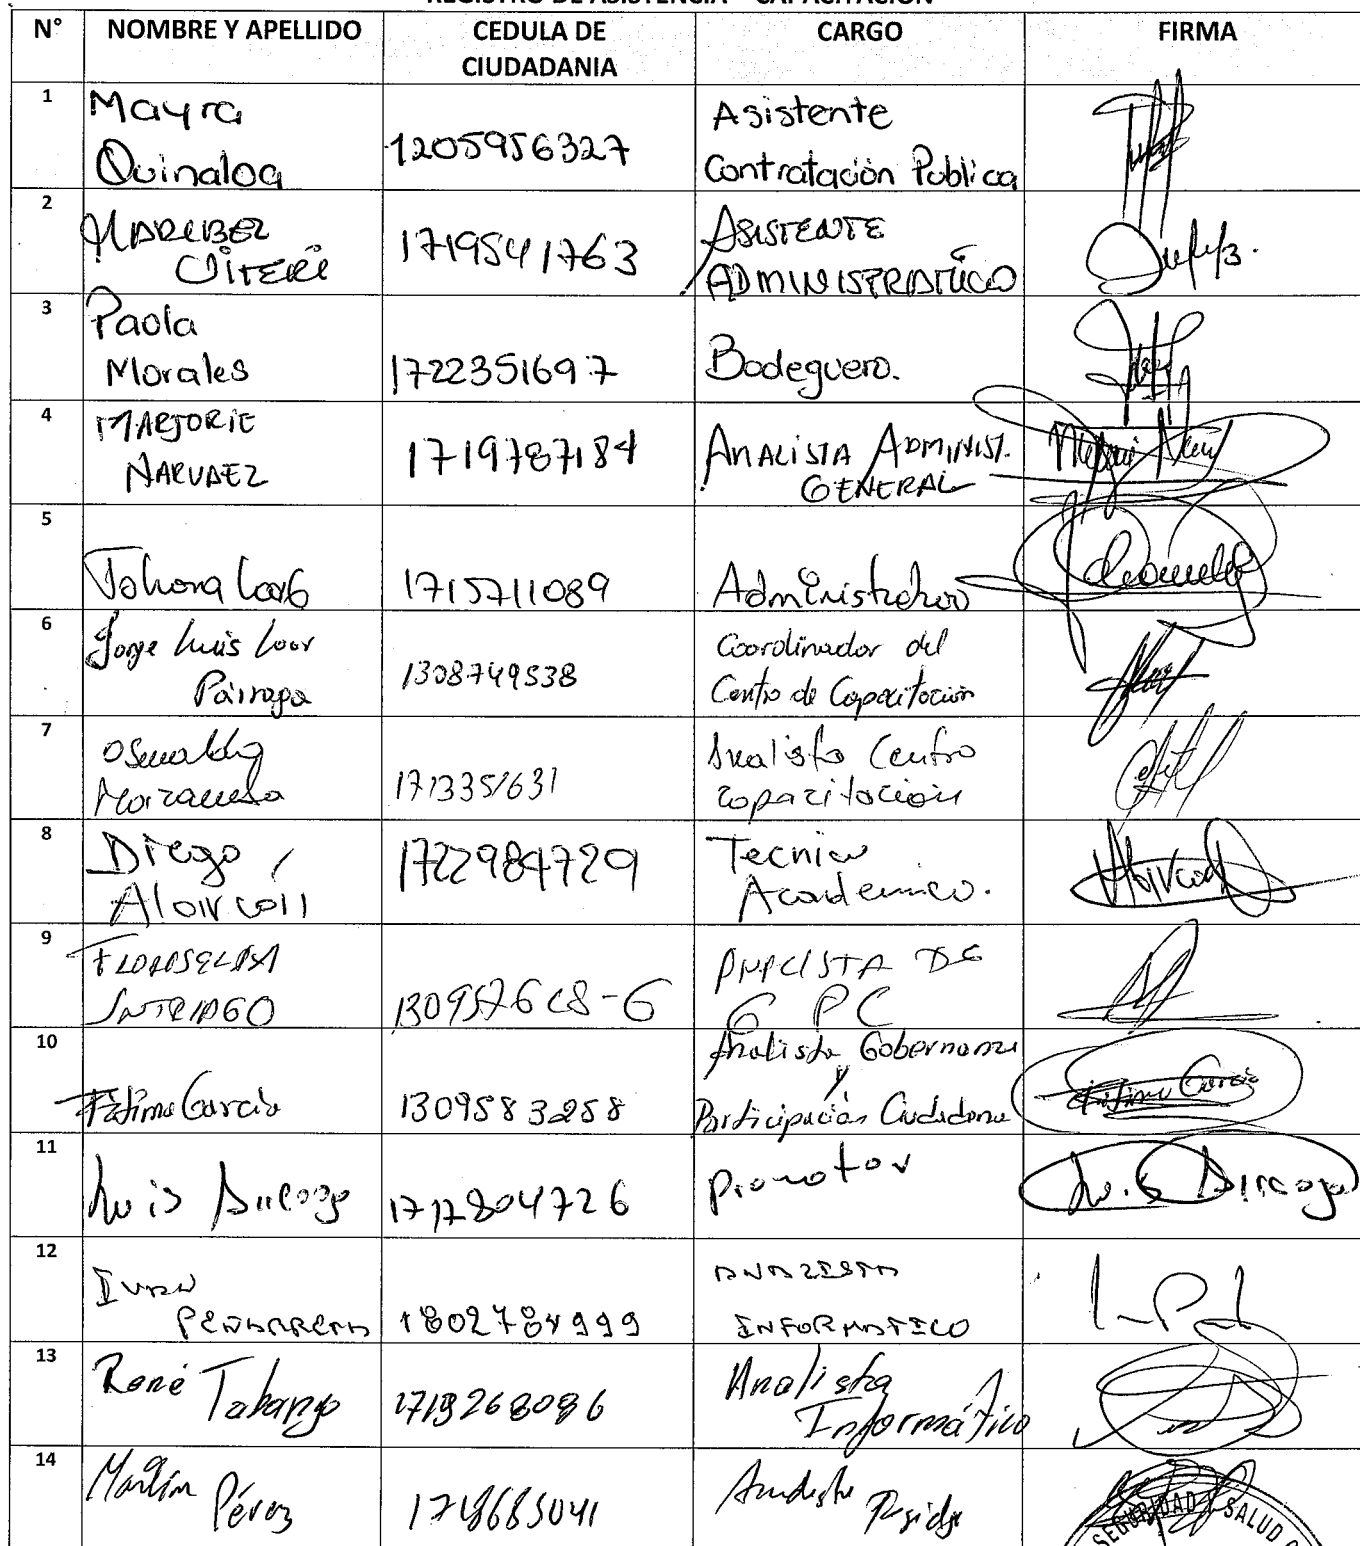 REGISTRO DE ASISTENCIA – CAPACITACIÓN
N° NOMBRE Y APELLIDO CEDULA DE CIUDADANIA CARGO FIRMA
1 Mayra Quinaloa 1205956327 Asistente Contratación Publica
2 MARIBEL VITERI 1719541763 ASISTENTE ADMINISTRATIVO
3 Paola Morales 1722351697 Bodeguero.
4 MARJORIE NARVAEZ 1719787184 ANALISTA ADMINIST. GENERAL
5 1715711089 Administrador
6 Jorge Luis Loor Párraga 1308749538 Coordinador del Centro de Capacitación
7 1713351631 Analista Centro Capacitación
8 Diego Alarcón 1722984729 Tecnico Academico.
9 INTRIAGO ANALISTA DE G P C
10 Fátima García 1309583258 Analista Gobernanza y Participación Ciudadana Fátima García
11 Luis 1717804726 Promotor Luis
12 IVAN PEÑARRETA 1802784999 ANALISTA INFORMATICO
13 René Tabango Analista Informático
14 Martín Pérez
SEGURIDAD SALUD